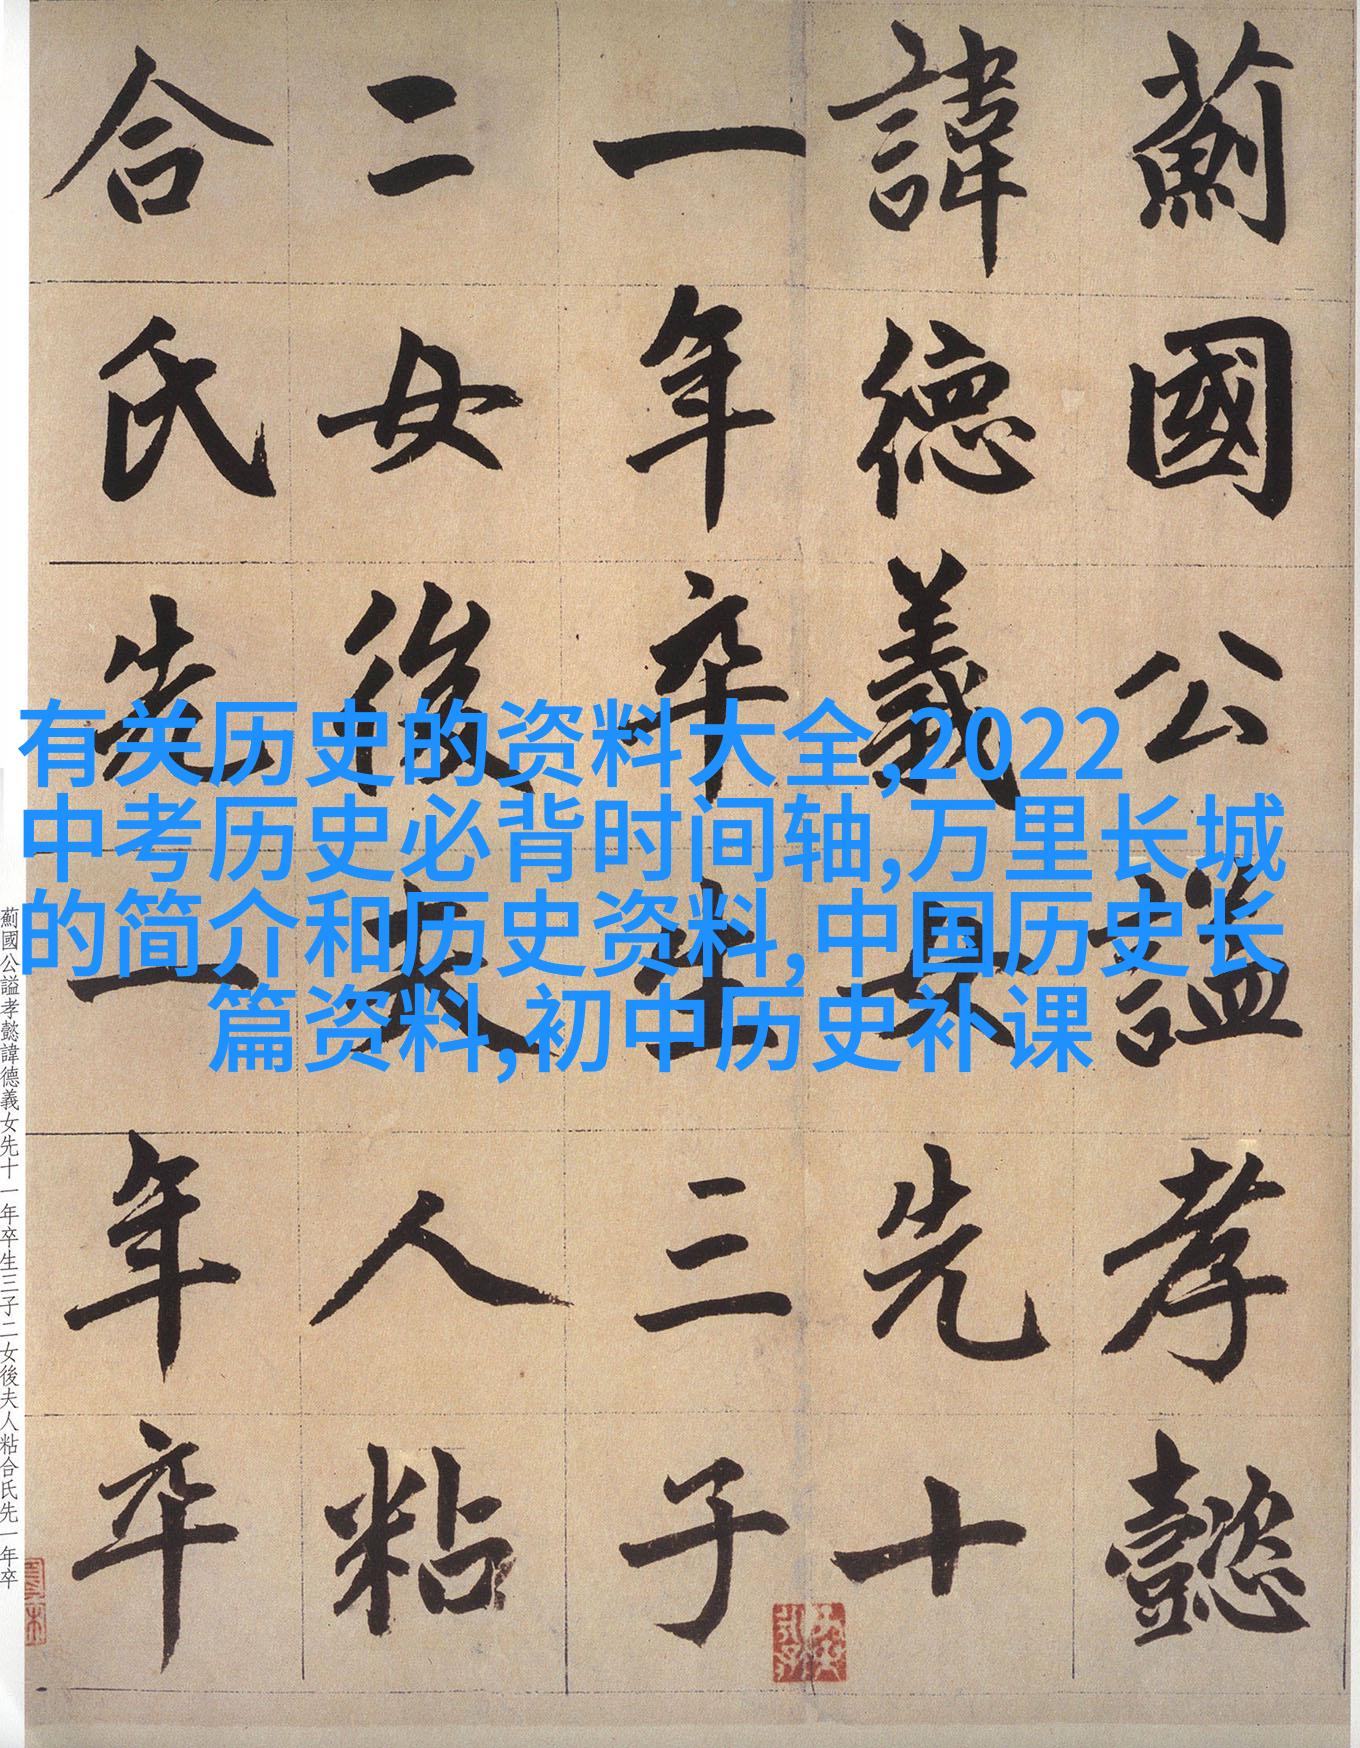 有关历史的资料大全,2022
中考历史必背时间轴,万里长城
的简介和历史资料,中国历史长
篇资料,初中历史补课
薊國公謚孝懿
諱德義女先十
一年卒生三子
二女後夫人粘
合氏先一年卒
薊國公謚孝懿諱德義女先十一年卒生三子二女後夫人粘合氏先一年卒